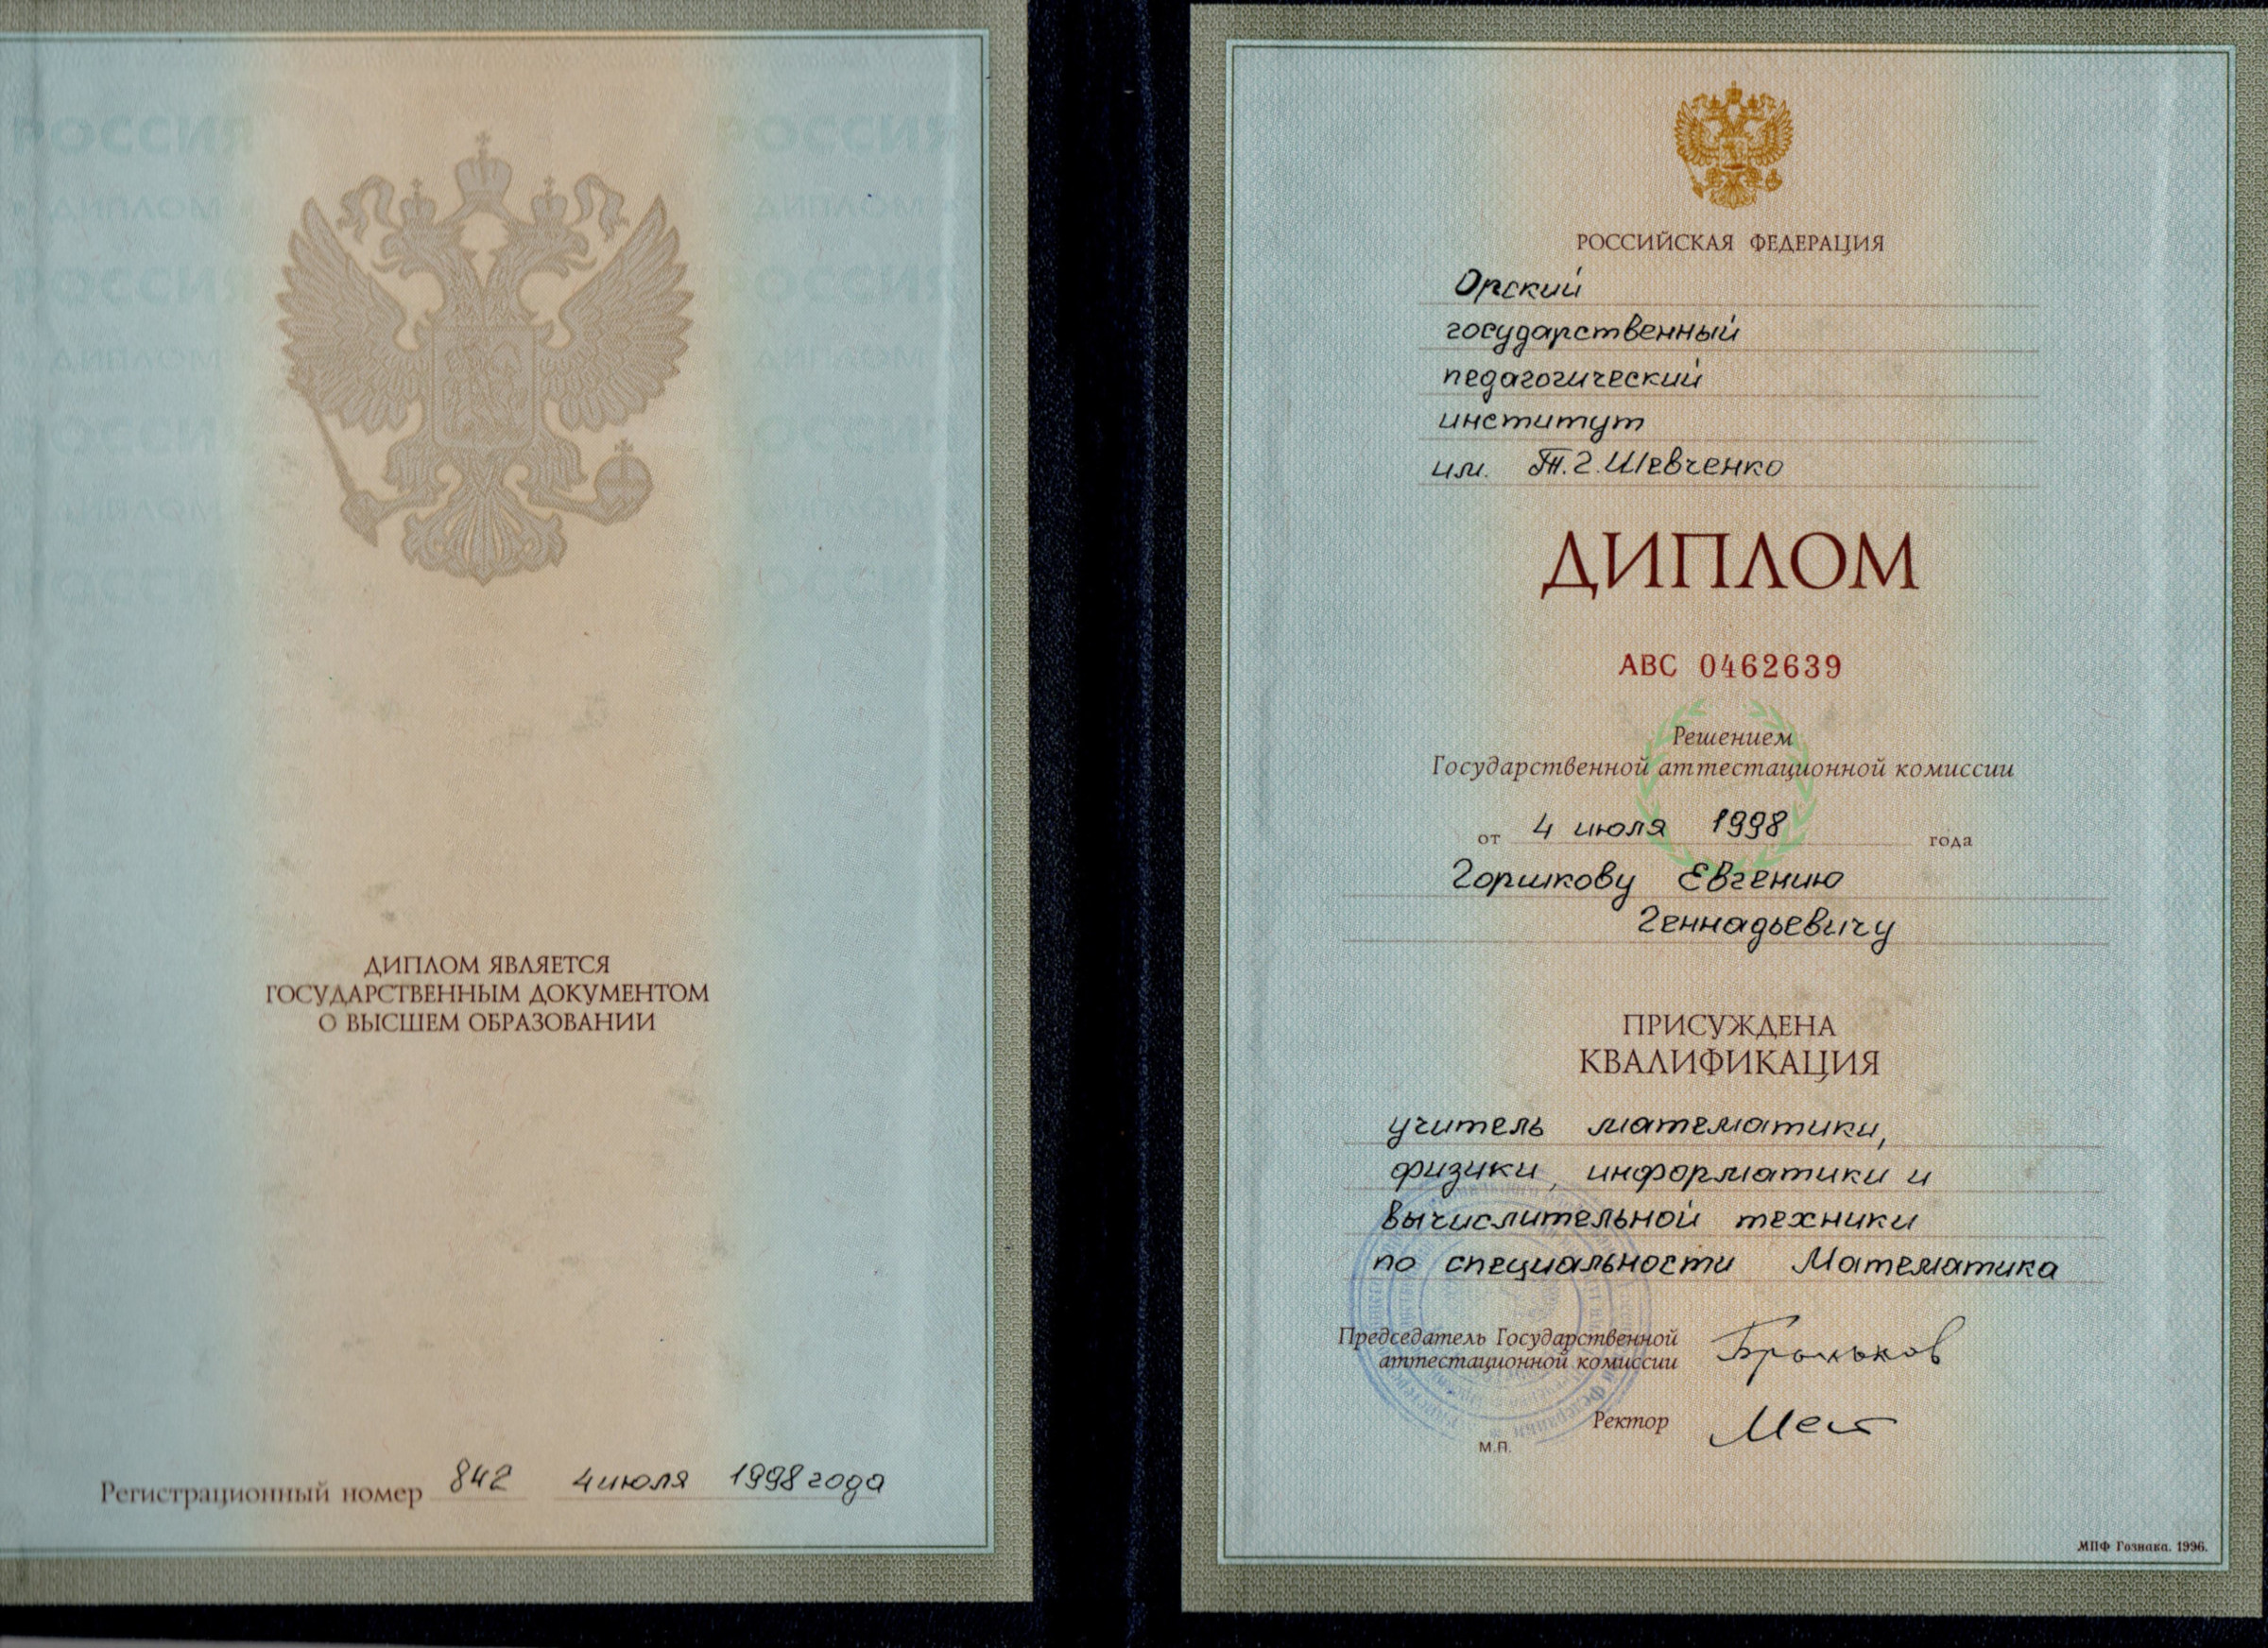 РОССИЯ РОССИЯ
ДИПЛОМ ДИПЛОМ
РОССИЯ РОССИЯ
ДИПЛОМ
ДИПЛОМ ЯВЛЯЕТСЯ
ГОСУДАРСТВЕННЫМ ДОКУМЕНТОМ
О ВЫСШЕМ ОБРАЗОВАНИИ
Регистрационный номер 842 4 июля 1998 года
РОССИЙСКАЯ ФЕДЕРАЦИЯ
Орский
государственный
педагогический
институт
им. Т.Г.Шевченко
ДИПЛОМ
АВС 0462639
Решением
Государственной аттестационной комиссии
от 4 июля 1998 года
Горшкову Евгению
Геннадьевичу
ПРИСУЖДЕНА
КВАЛИФИКАЦИЯ
учитель математики,
физики, информатики и
вычислительной техники
по специальности Математика
Председатель Государственной
аттестационной комиссии
Ректор
М.П.
МПФ Гознака. 1996.